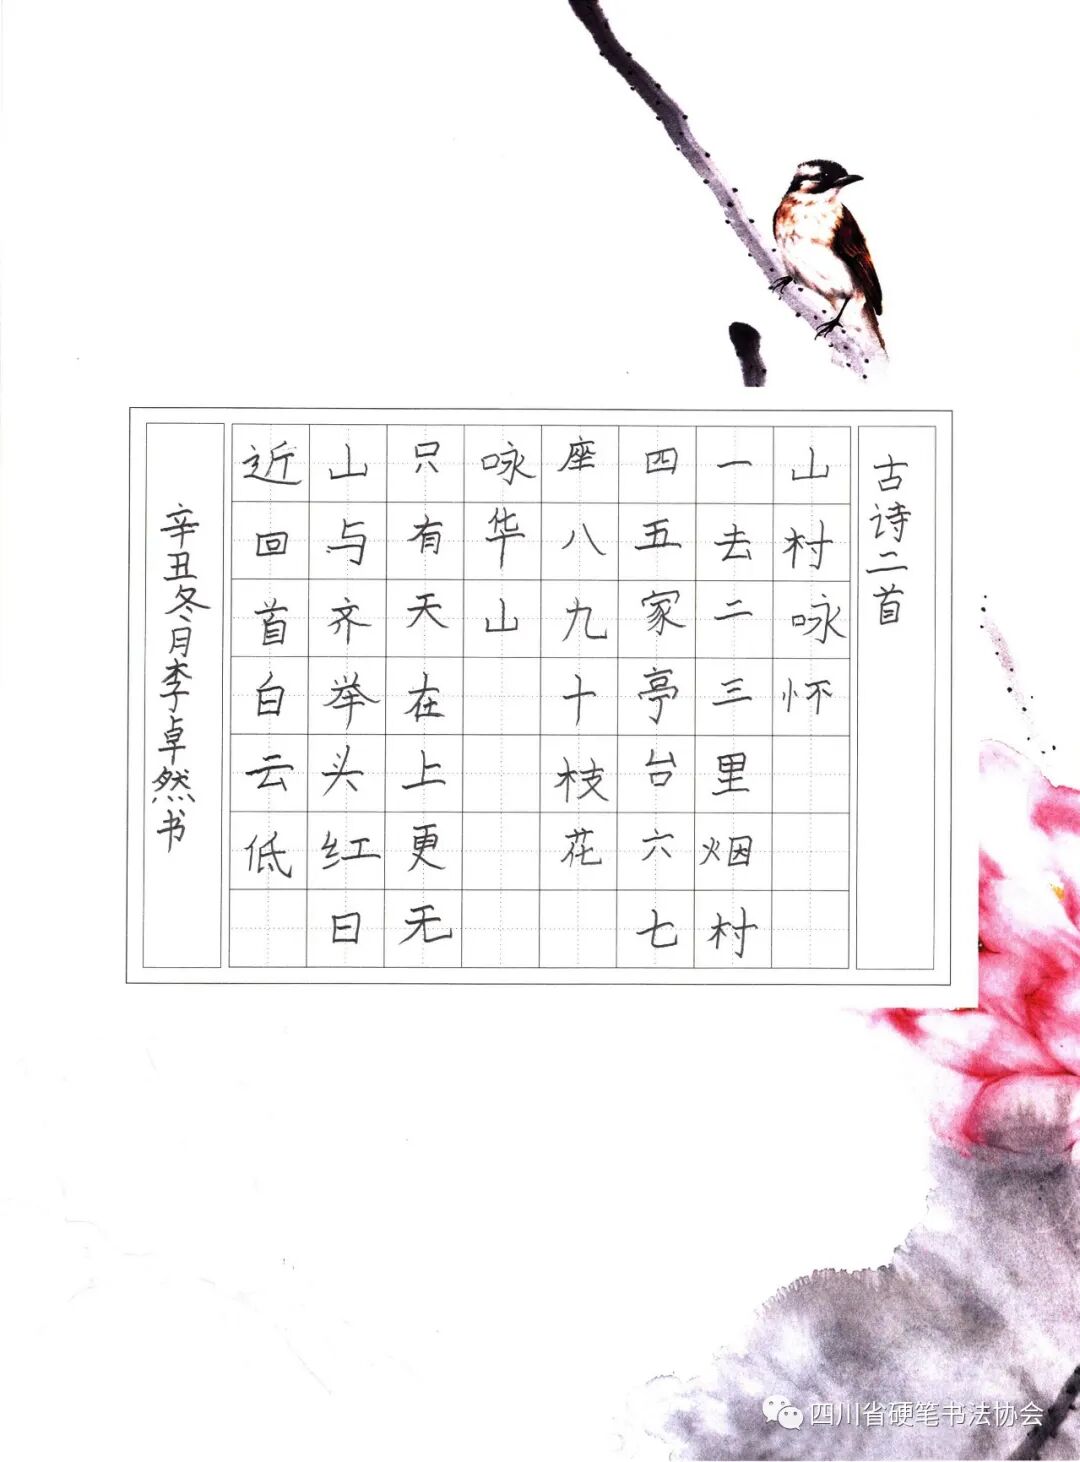 古诗二首
山村咏怀
一去二三里烟村
四五家亭台六七
座八九十枝花
咏华山
只有天在上更无
山与齐举头红日
近回首白云低
辛丑冬月李卓然书
四川省硬笔书法协会